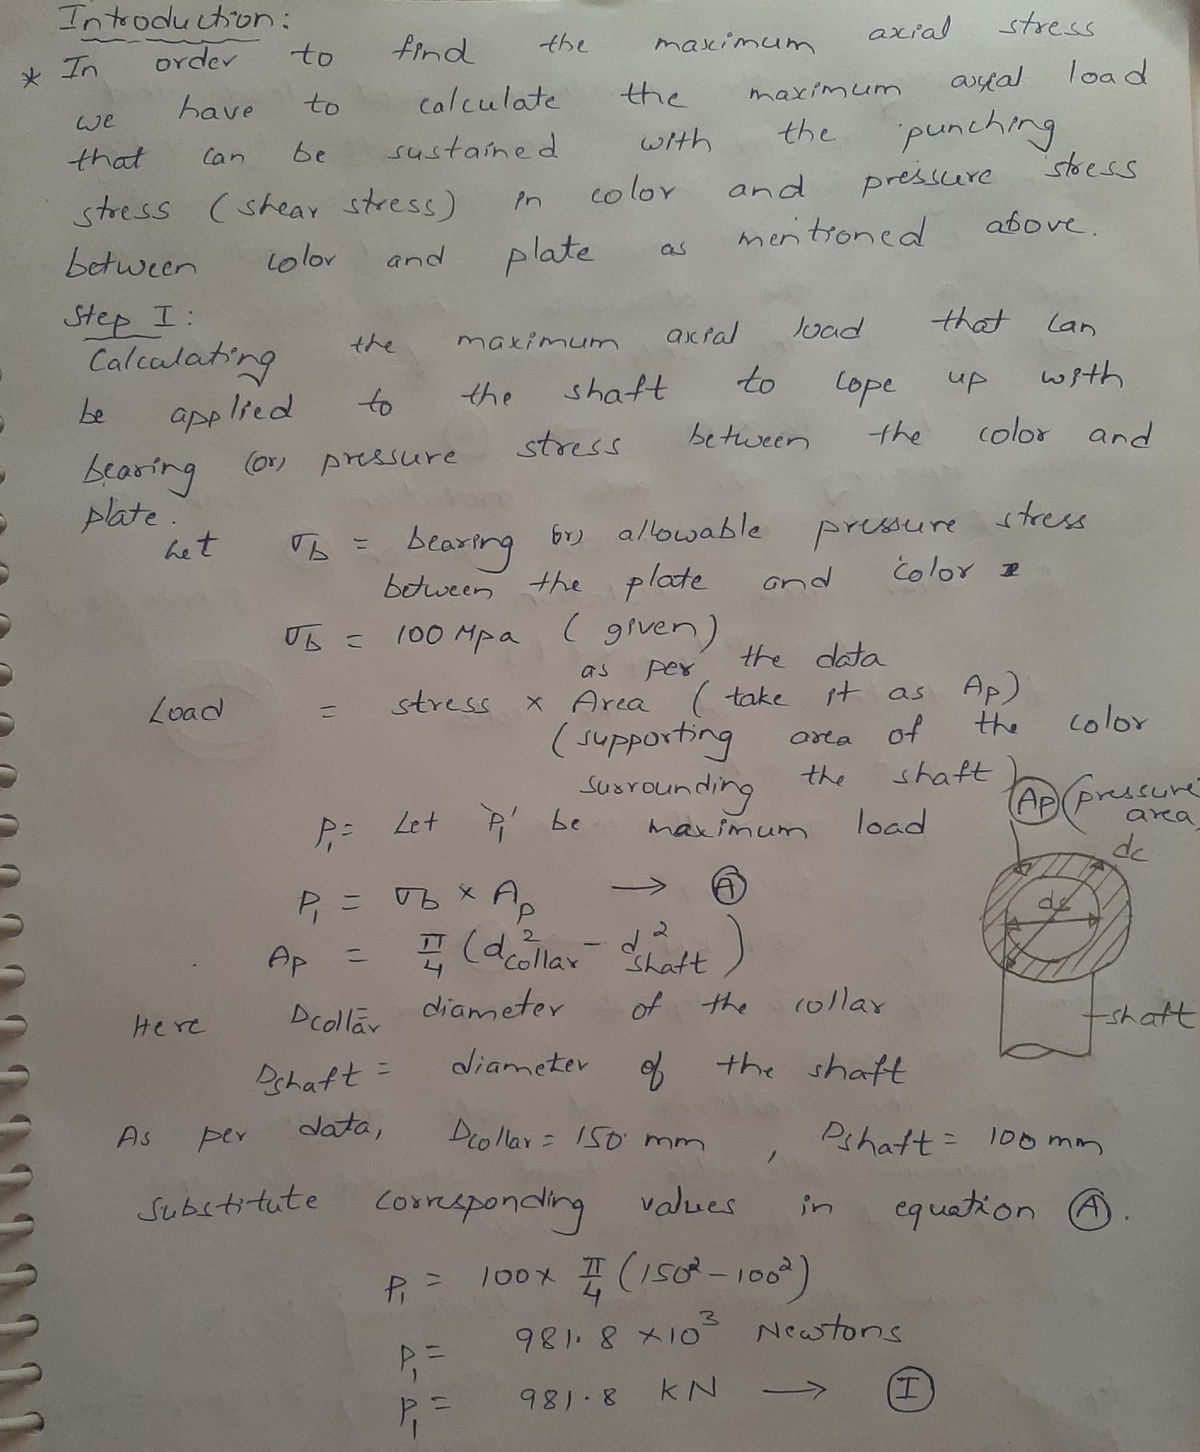 Introduction:
* In order to find the maximum axial stress
we have to calculate the maximum axial load
that can be sustained with the punching
stress (shear stress) in color and pressure stress
between color and plate as mentioned above.
Step I:
Calculating the maximum axial load that can
be applied to the shaft to cope up with
bearing (or) pressure stress between the color and
plate.
Let σb = bearing (or) allowable pressure stress
between the plate and color
σb = 100 Mpa (given)
as per the data
Load = stress × Area (take it as Ap)
(supporting area of the color
surrounding the shaft)
Ap (pressure
area
P1 = Let 'P1' be maximum load
dc
P1 = σb × Ap → A
ds
Ap = π/4 (d²collar - d²shaft)
Here Dcollar = diameter of the collar
shaft
Dshaft = diameter of the shaft
As per data, Dcollar = 150 mm, Dshaft = 100 mm
Substitute corresponding values in equation A.
P1 = 100 × π/4 (150² - 100²)
P1 = 981.8 × 10³ Newtons
P1 = 981.8 KN → I